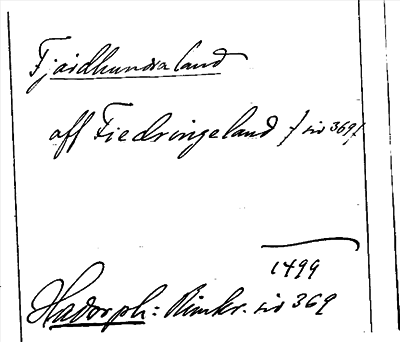 Fjärdhundraland
aff Fiedringeland / sid 369/
1499
Hadorph: Rimkr. sid 369